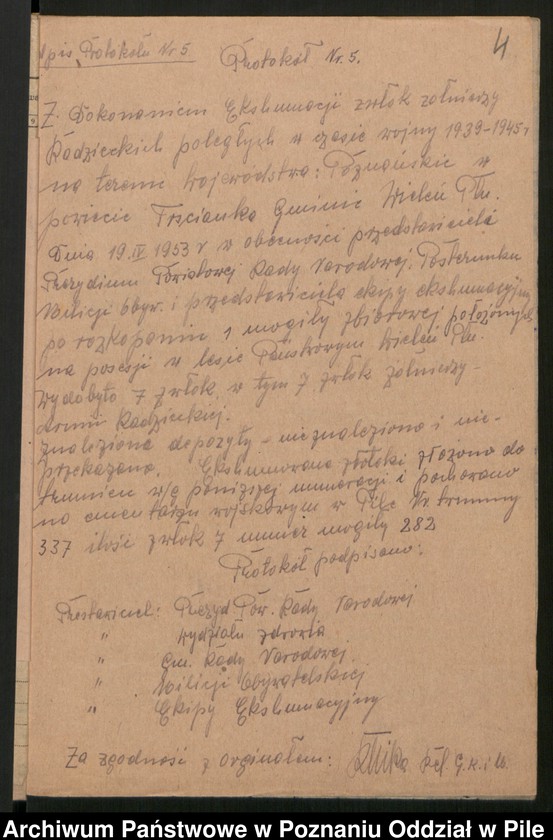 Opis Protokółu Nr 5.
4
Protokół Nr. 5.
Z Dokonaniem Ekshumacji zwłok żołnierzy
Radzieckich poległych w czasie wojny 1939-1945 r
na terenie Województwa: Poznańskie w
powiecie Trzcianka Gminie Wieleń Płn.
Dnia 19.IV 1953 r w obecności przedstawiciela
Prezydium Powiatowej Rady Narodowej. Posterunku
Milicji Obyw. i przedstawiciela ekipy ekshumacyjnej
po rozkopaniu 1 mogiły zbiorowej położonych
na posesji w lesie Państwowym Wieleń Płn.
wydobyto 7 zwłok, w tym 7 zwłok żołnierzy-
Armii Radzieckiej.
Znalezione depozyty - nieznaleziono i nie-
przekazano. Ekshumowane zwłoki złożono do
trumien w/g poniższej numeracji i pochowano
na cmentarzu wojskowym w Pile Nr. trumny
337 ilość zwłok 7 numer mogiły 282
Protokół podpisano:
Przstawiciel: Prezyd. Pow. Rady Narodowej
" Wydziału zdrowia
" Gm. Rady Narodowej
" Milicji Obywatelskiej
" Ekipy Ekshumacyjny
Za zgodność z orginałem: G.K. i M.
Archiwum Państwowe w Poznaniu Oddział w Pile